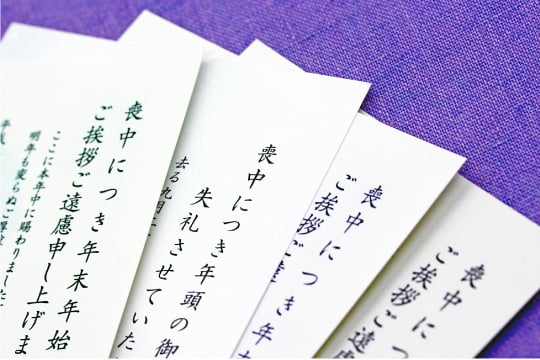 喪中につき年末年始
ご挨拶ご遠慮申し上げま
ここに本年中に賜わりました
明年も変らぬご厚
平成
喪中につき年頭の御
失礼させていた
去る九月
喪中につき年
ご挨拶ご遠
喪中につ
ご挨拶ご遠慮